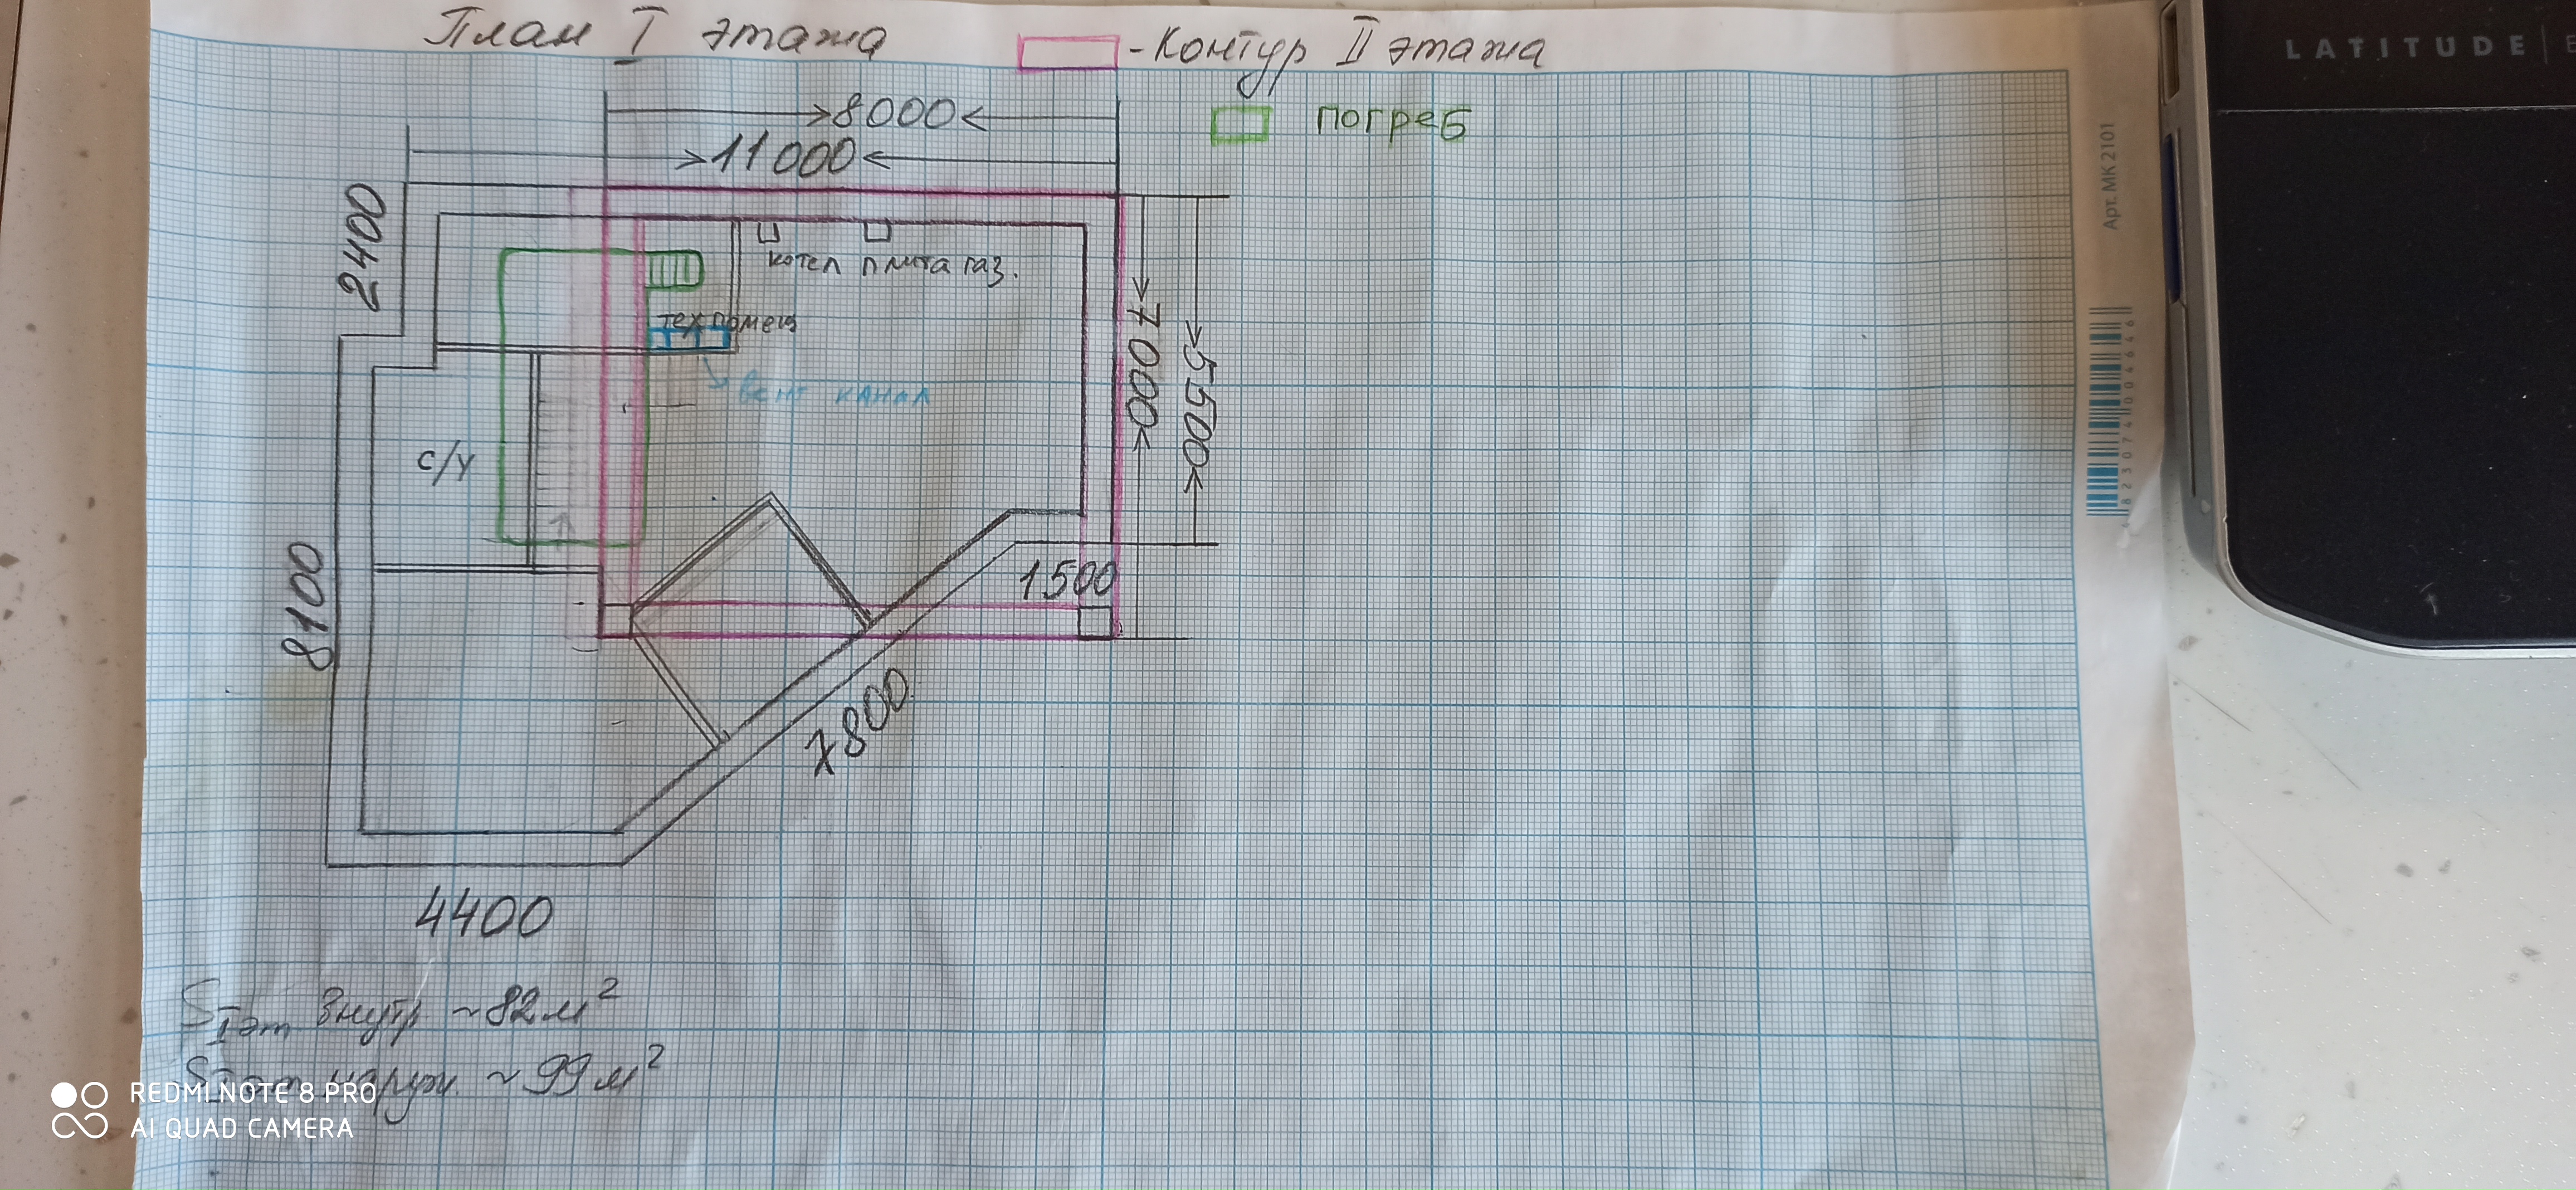 План I этажа
- Контур II этажа
погреб
8000
11000
2400
котел плита газ.
тех помещ
вент канал
7000
5500
с/у
1500
8100
7800
4400
S I эт внутр ~ 82 м²
S I эт наруж. ~ 99 м²
LATITUDE E
Арт. МК 2101
REDMI NOTE 8 PRO
AI QUAD CAMERA